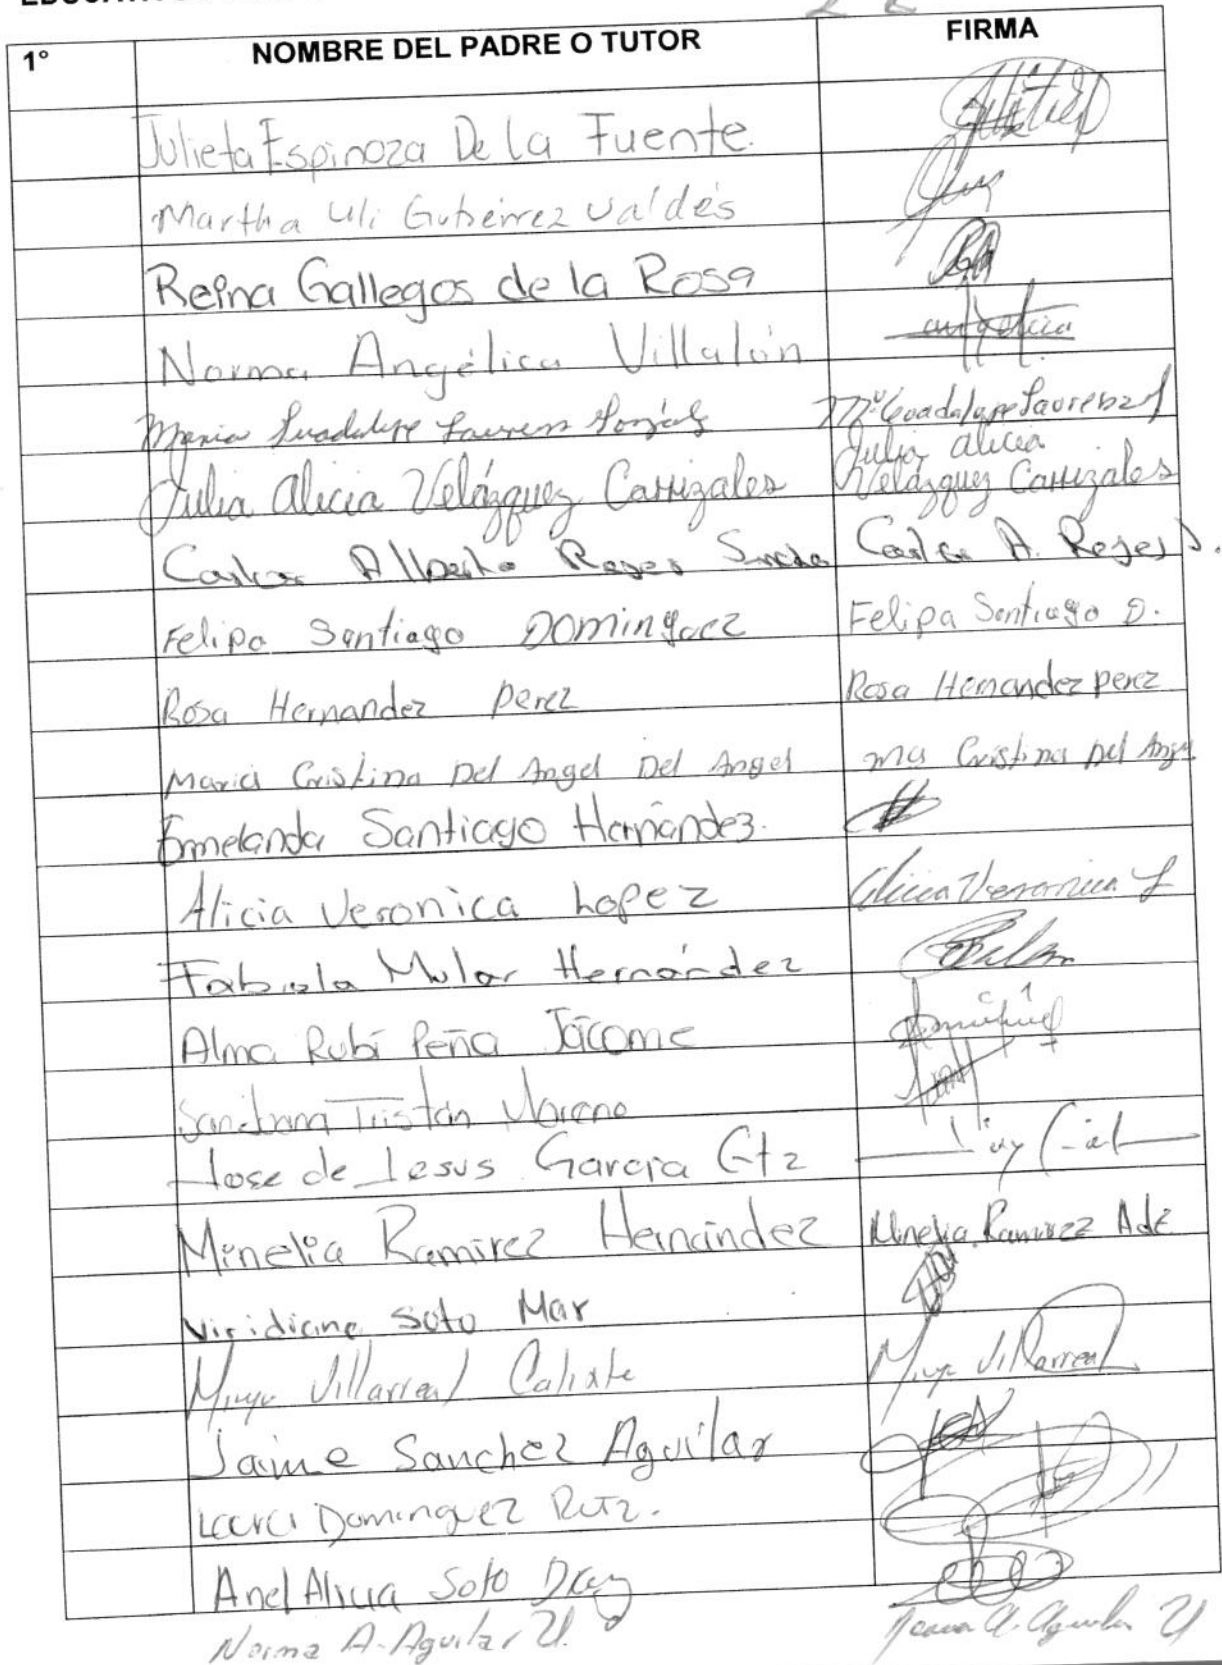 1° NOMBRE DEL PADRE O TUTOR FIRMA
Julieta Espinoza De la Fuente.
Martha Uli Gutiérrez Valdés
Reina Gallegos de la Rosa
Norma Angélica Villalón angelica
Maria Guadalupe Laurens González Ma Guadalupe
Julia Alicia Velázquez Carrizales Julia Alicia Velázquez Carrizales
Carlos Alberto Reyes Carlos A. Reyes S.
Felipa Santiago Dominguez Felipa Santiago D.
Rosa Hernandez perez Rosa Hernandez perez
Maria Cristina Del Angel Del Angel ma Cristina Del Angel
Ermelanda Santiago Hernández.
Alicia Veronica Lopez Alicia Veronica L
Fabiola Mular Hernández
Alma Rubí Peña Jácome
Tristán Moreno
Jose de Jesus Garcia Gtz
Minelia Ramirez Hernández Minelia Ramirez
Viridiana Soto Mar
Villarreal Calixto Villarreal
Jaime Sanchez Aguilar
Laura Dominguez
Anel Alicia Soto Diaz
Norma A. Aguilar U. Norma A. Aguilar U